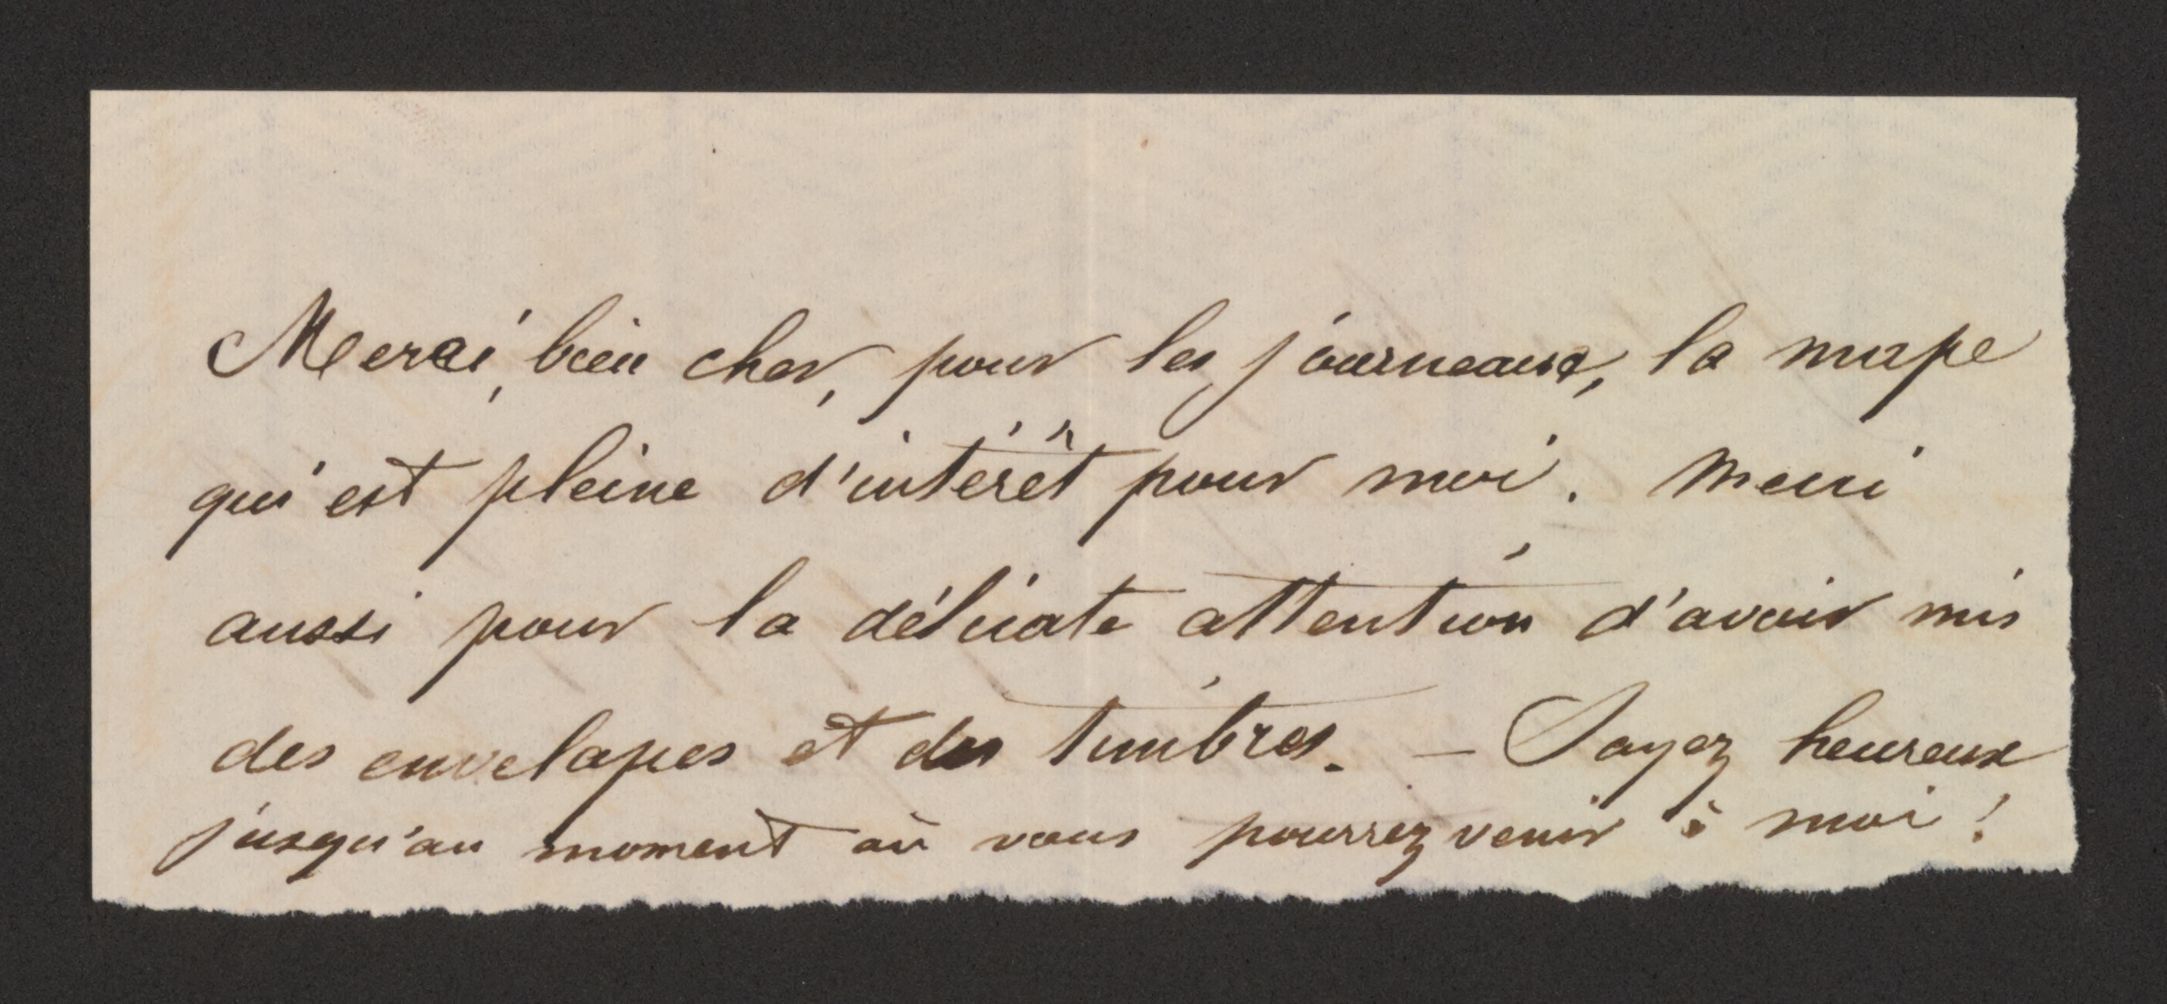 Merci, bien cher, pour les journeaux, la mape
qui est pleine d'intérêt pour moi. Merci
aussi pour la délicate attention d'avoir mis
des envelopes et des timbres. — Soyez heureux
jusqu'au moment où vous pourrez venir à moi !